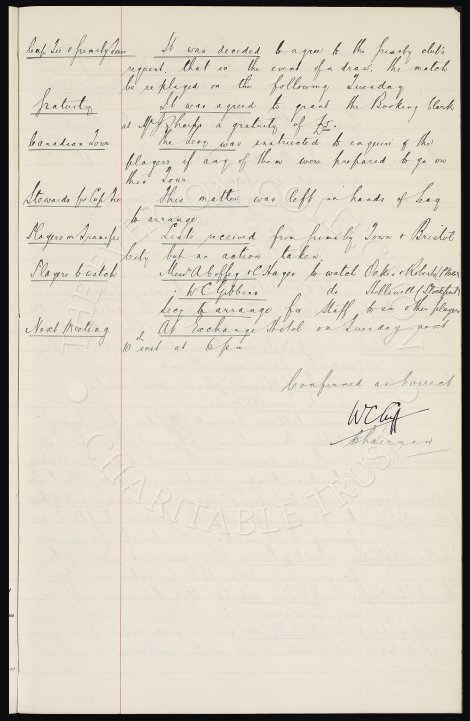 Cup Tie v Grimsby Town It was decided to agree to the Grimsby club's
request, that in the event of a draw, the match
be replayed on the following Tuesday
Gratuity It was agreed to grant the Booking Clerk
at Mr J Sharps a gratuity of £5.
Canadian Tour The Secy was instructed to enquire of the
players if any of them were prepared to go on
this Tour
Stewards for Cup Tie This matter was left in hands of Secy
to arrange
Players on Transfer Lists received from Grimsby Town & Bristol
City but no action taken
Players to watch Messrs A Coffey & C Hayes to watch Oakes & Roberts
W C Gibbins do Halliwell (Stockport)
Secy to arrange for Staff to see other players
Next Meeting At Exchange Hotel on Tuesday next
10th inst at 6 pm
Confirmed as Correct
W C Cuff
Chairman
CHARITABLE TRUST